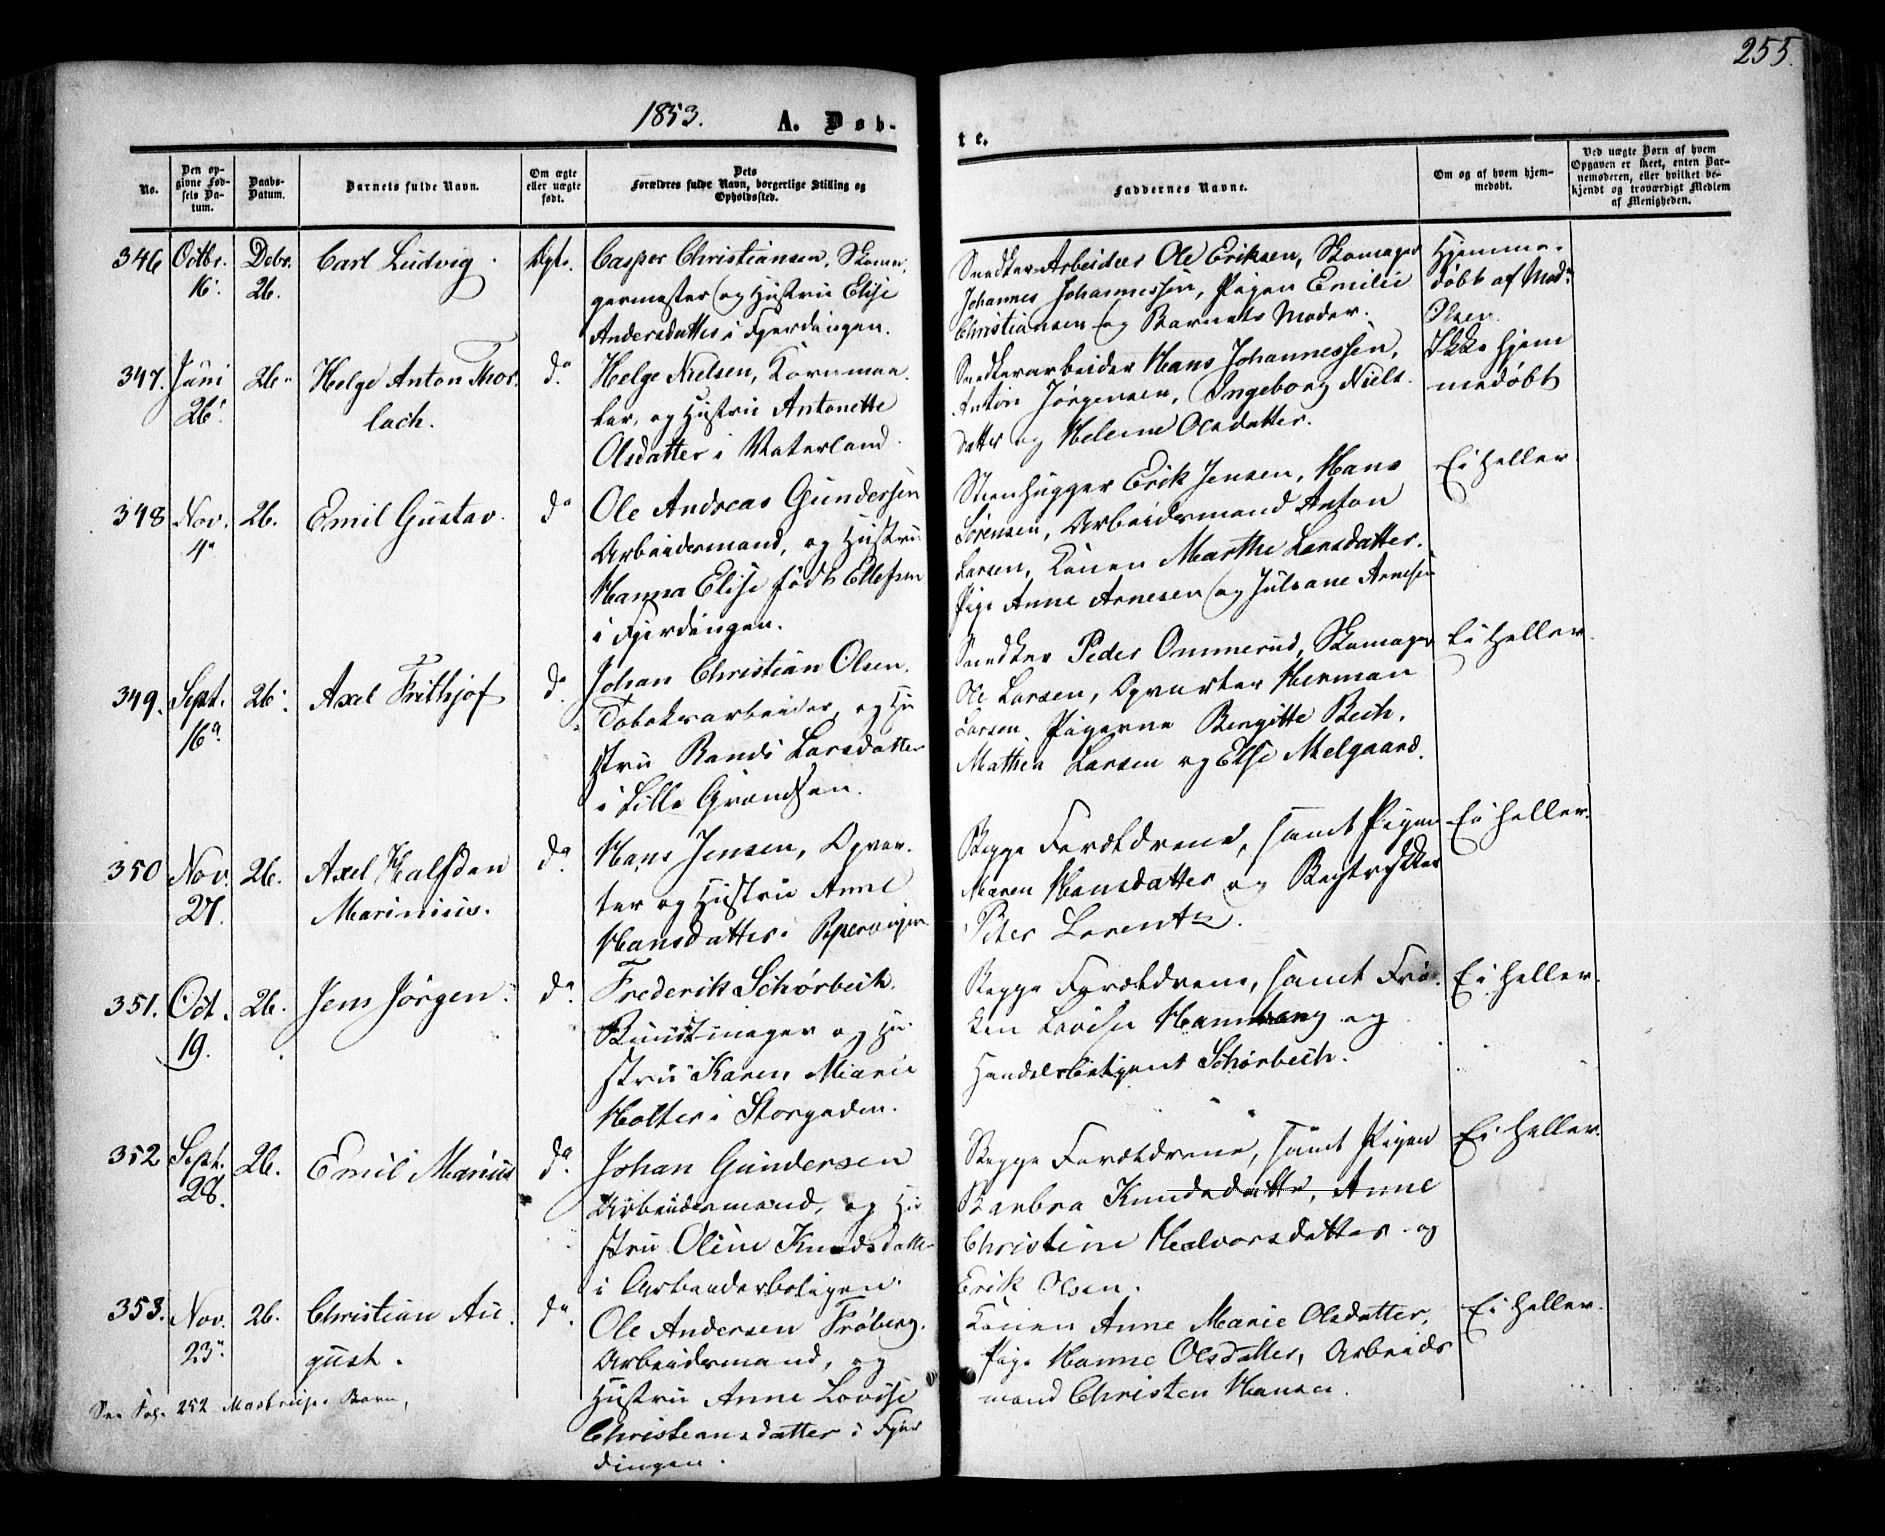 255.
1853.
A. Døb-
te.
No.
Den opgivne Fødsels Datum.
Daabs-Datum.
Barnets fulde Navn.
Om ægte eller uægte født.
Dets Forældres fulde Navn, borgerlige Stilling og Opholdssted.
Faddernes Navne.
Om og af hvem hjemmedøbt.
Ved uægte Børn af hvem Opgaven er skeet, enten Barnemoderen, eller hvilket bekjendt og troværdigt Medlem af Menigheden.
346 Octbr. 16. Debr. 26. Carl Ludvig. Ægte.
Casper Christiansen, Skoma-
germester og Hustru Elise
Andersdatter i Fjerdingen.
Snedker Arbeider Ole Eriksen, Skomager
Johannes Johannessen, Pigen Emilie
Christiansen og Barnets Moder.
Hjemme-
døbt af Mad.
Olsen.
347. Juni 26. 26. Helge Anton Thor
lach. do
Helge Nielsen, Kornmaa-
ler, og Hustru Antonette
Olsdatter i Vaterland.
Snedkerarbeider Hans Johannessen,
Anton Jørgensen, Ingeborg Niels-
datter og Helene Olsdatter.
Ikke hjem
medøbt
348 Nov. 4 26. Emil Gustav. do
Ole Andreas Gundersen
Arbeidsmand, og Hustru
Hanna Elise født Ellefsen
i Fjerdingen.
Steenhugger Erik Jensen, Hans
Sørensen, Arbeidsmand Anton
Larsen, Konen Marthe Larsdatter.
Pige Anne Arnesen og Julsane Arnesen
Ei heller.
349. Sept. 16 26. Axel Frithjof do
Johan Christian Olsen.
Tobaksarbeider, og Hu
stru Randi Larsdatter
i Lille Grændsen.
Snedker Peder Ommerud, Skomager
Ole Larsen, Opvarter Herman
Larsen, Pigerne Bergitte Bech,
Mathea Larsen og Else Melgaard.
Ei heller.
350 Nov. 27. 26. Axel Halfdan
Marinius. do
Hans Jensen, Opvar-
ter og Hustru Anne
Hansdatter i Pipervigen
Begge Forældrene, samt Pigen
Maren Hansdatter og Bogtrykker
Peter Lorentz.
Ei heller.
351. Oct. 19. 26. Jens Jørgen. do
Frederik Schørbech.
Buntmager og Hu-
stru Karen Marie
Holter i Storgaden.
Begge Forældrene, samt Frø-
ken Lovise Hamborg og
Handelsbetjent Schørbech.
Ei heller.
352 Sept. 28. 26. Emil Marius do
Johan Gundersen
Arbeidsmand, og Hu
stru Oline Knudsdatter
i Arbeiderboligen.
Begge Forældrene, samt Pigen
Barbra Knudsdatter, Anne
Christine Halvorsdatter og
Erik Olsen.
Ei heller.
353. Nov. 23. 26. Christian Au
gust. do
Ole Andersen Frøberg.
Arbeidsmand, og
Hustru Anne Lovise
Christiansdatter i Fjer
dingen.
Konen Anne Marie Olsdatter,
Pige Hanne Olsdatter, Arbeids
mand Christen Hansen.
Ei heller.
See Fol. 252 Barn,